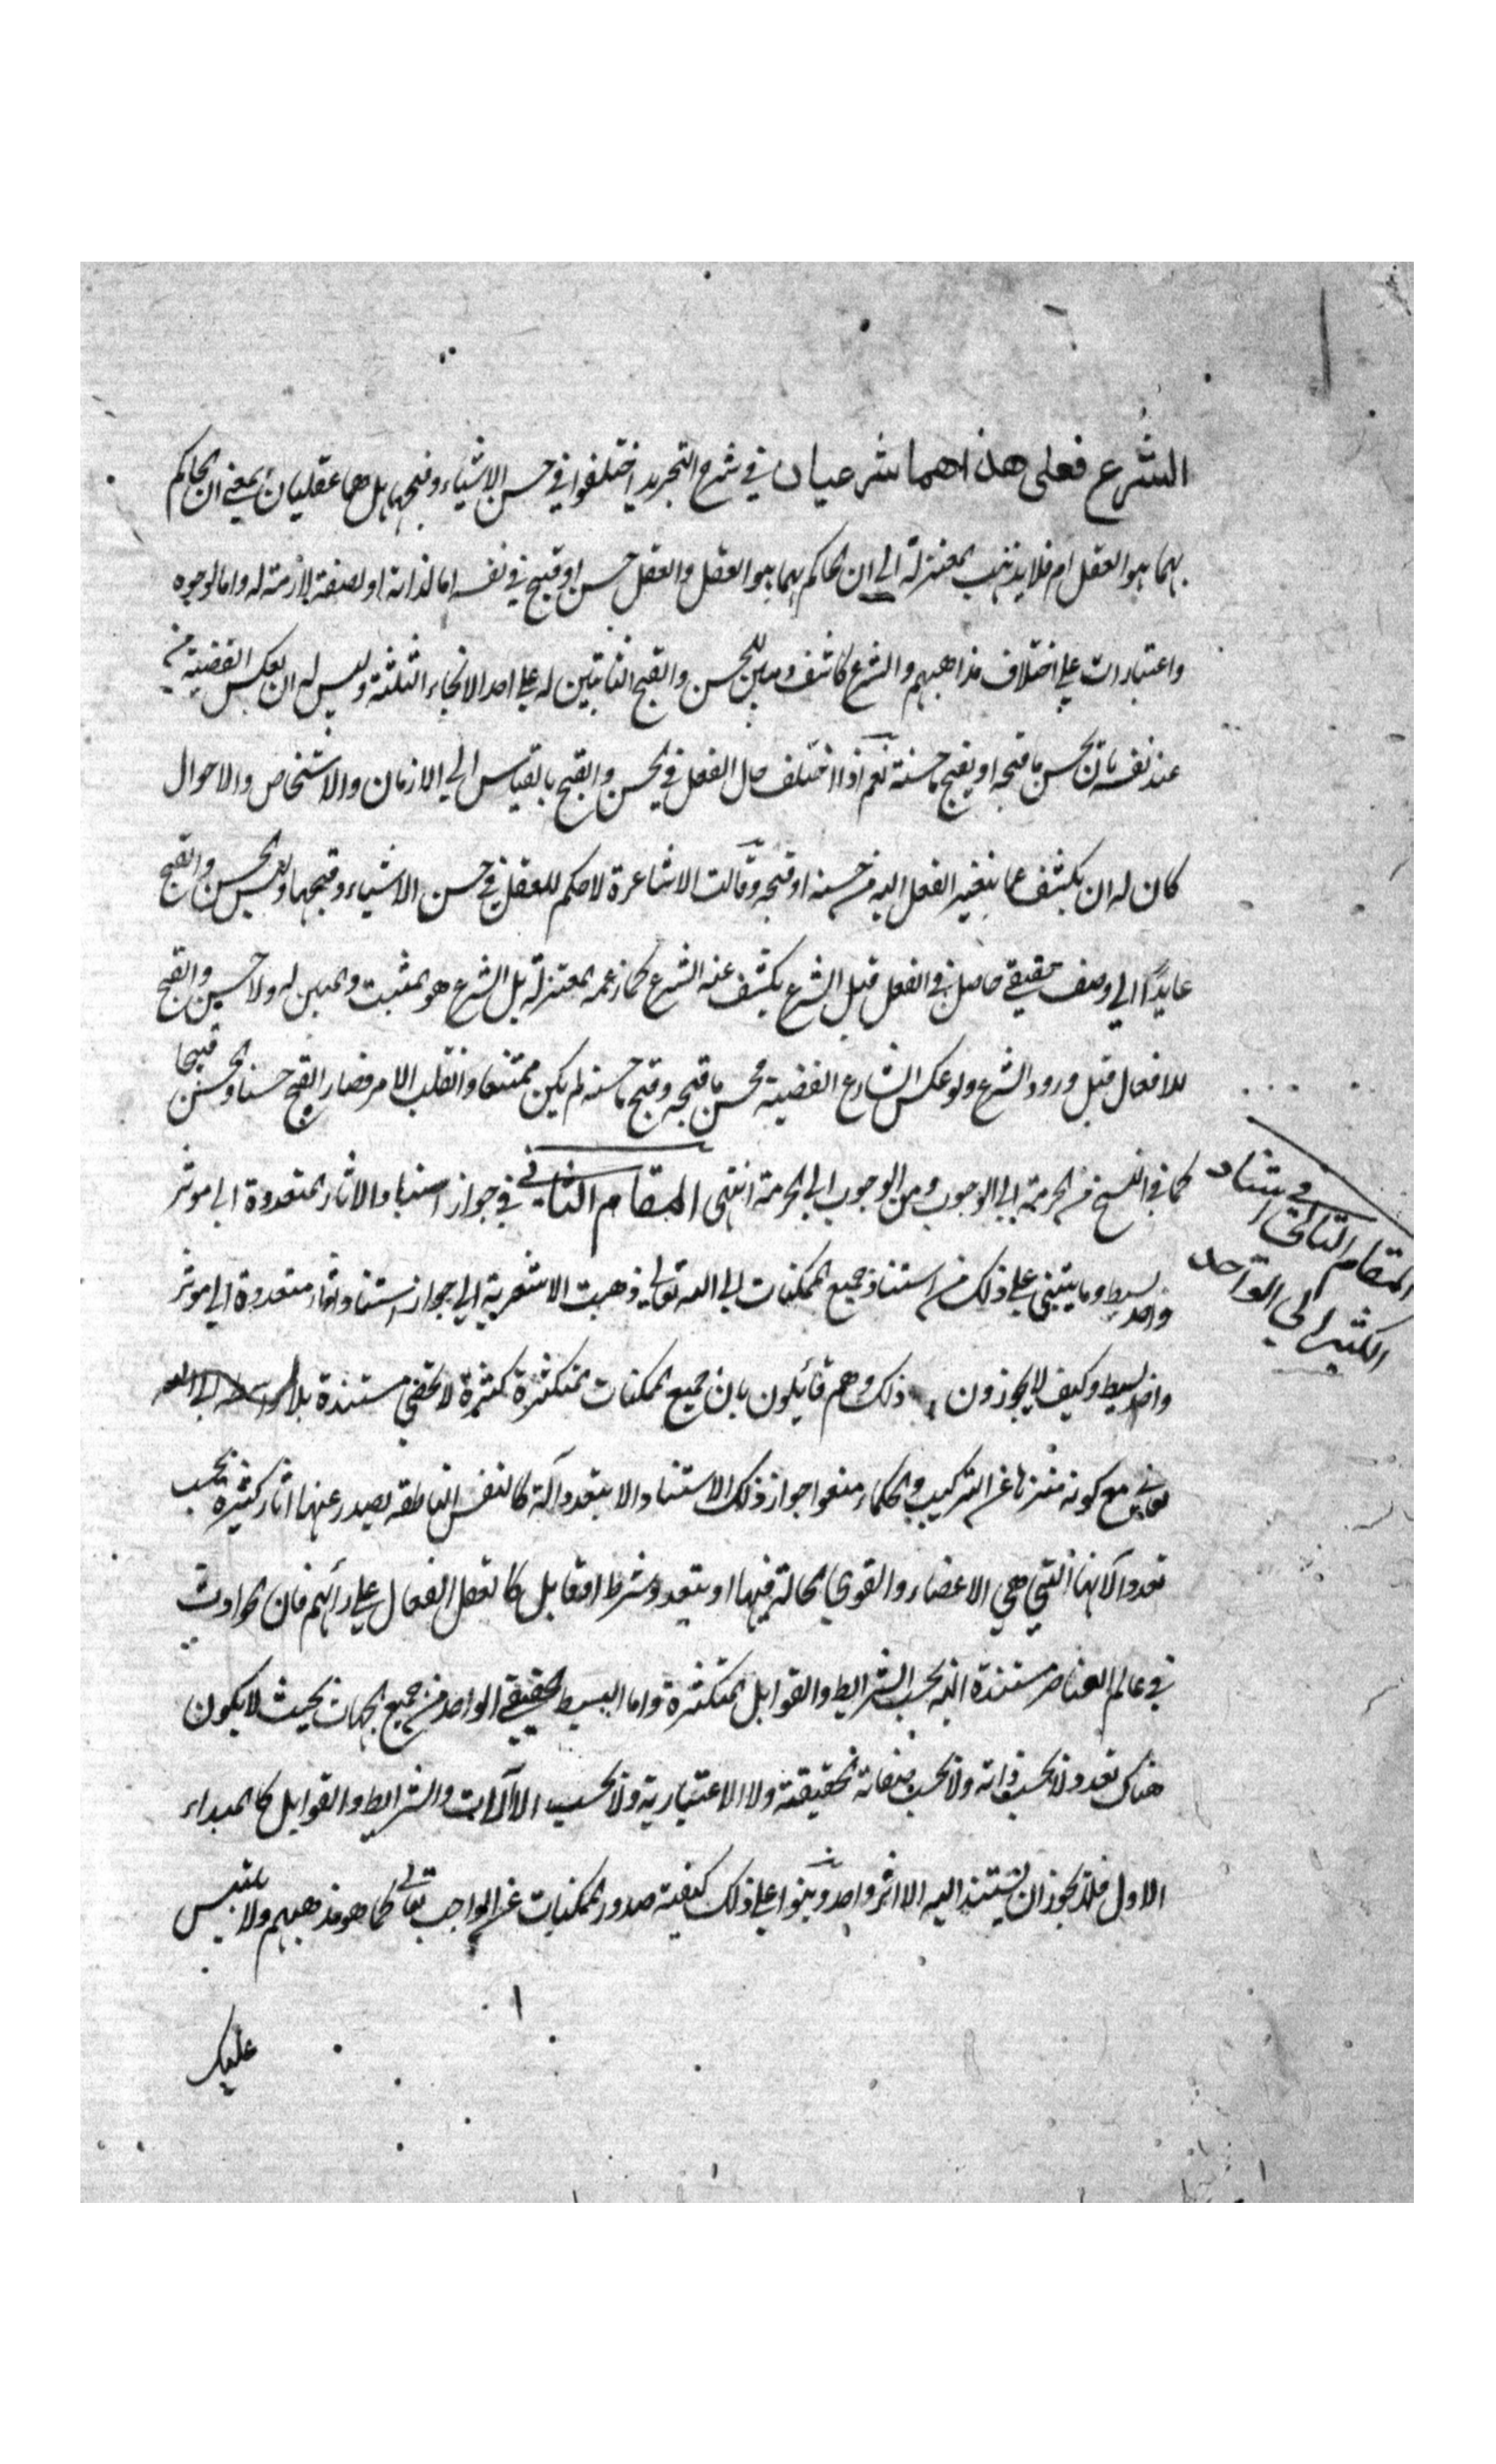 الشرع فعلى هذا هما شرعيان في شرح التجريد اختلفوا في حسن الاشياء وقبحها بل هما عقليان بمعنى ان الحاكم
بهما هو العقل ام فلا يذهب المعتزلة الى ان الحاكم بهما هو العقل والعقل حسن او قبيح في نفسه اما لذاته او لصفة لازمة له واما لوجوه
واعتبارات على اختلاف مذاهبهم والشرع كاشف ومبين للحسن والقبح الثابتين له على احد الانحاء الثلثة وليس له ان يعكس القضية من
عند نفسه بان يحسن ما قبحه او يقبح ما حسنه نعم اذا اختلف حال الفعل في الحسن والقبح بالقياس الى الازمان والاشخاص والاحوال
كان له ان يكشف عما يتغير الفعل اليه من حسنه او قبحه وقالت الاشاعرة لا حكم للعقل في حسن الاشياء وقبحها وليس الحسن والقبح
عايدًا الى وصف حقيقي حاصل في الفعل قبل الشرع يكشف عنه الشرع كما زعمه المعتزلة بل الشرع هو المثبت والمبين له ولا حسن والقبح
للافعال قبل ورود الشرع ولو عكس الشارع القضية فحسن ما قبحه وقبح ما حسنه لم يكن ممتنعا وانقلب الامر فصار القبح حسنا والحسن قبيحا
كما في النسخ من الحرمة الى الوجوب ومن الوجوب الى الحرمة انتهى المقام الثاني في جواز استناد الاثار المتعددة الى موثر
واحد بسيط وما يبتنى على ذلك من استناد جميع الممكنات الى الله تعالى ذهبت الاشعرية الى جواز استناد اثار متعددة الى موثر
واحد بسيط وكيف لا يجوزون ذلك وهم قائلون بان جميع الممكنات المتكثرة كثرة لا تحصى مستندة بلا واسطة الى الله
تعالى مع كونه منزها عن التركيب والحكماء منعوا جواز ذلك الاستناد الا بتعدد آلة كالنفس الناطقة يصدر عنها اثار كثيرة بحسب
تعدد آلاتها التي هي الاعضاء والقوى الحالة فيها او بتعدد شرط او قابل كالعقل الفعال على رائهم فان الحوادث
في عالم العناصر مستندة اليه بحسب الشرايط والقوابل المتكثرة واما البسيط الحقيقي الواحد من جميع الجهات بحيث لا يكون
هناك تعدد لا بحسب ذاته ولا بحسب صفاته الحقيقية ولا الاعتبارية ولا بحسب الآلات والشرايط والقوابل كالمبداء
الاول فلا يجوز ان يستند اليه الا اثر واحد وبنوا على ذلك كيفية صدور الممكنات عن الواجب تعالى كما هو مذهبهم ولا يلتبس
عليك
المقام الثاني في استناد
الكثير الى الواحد